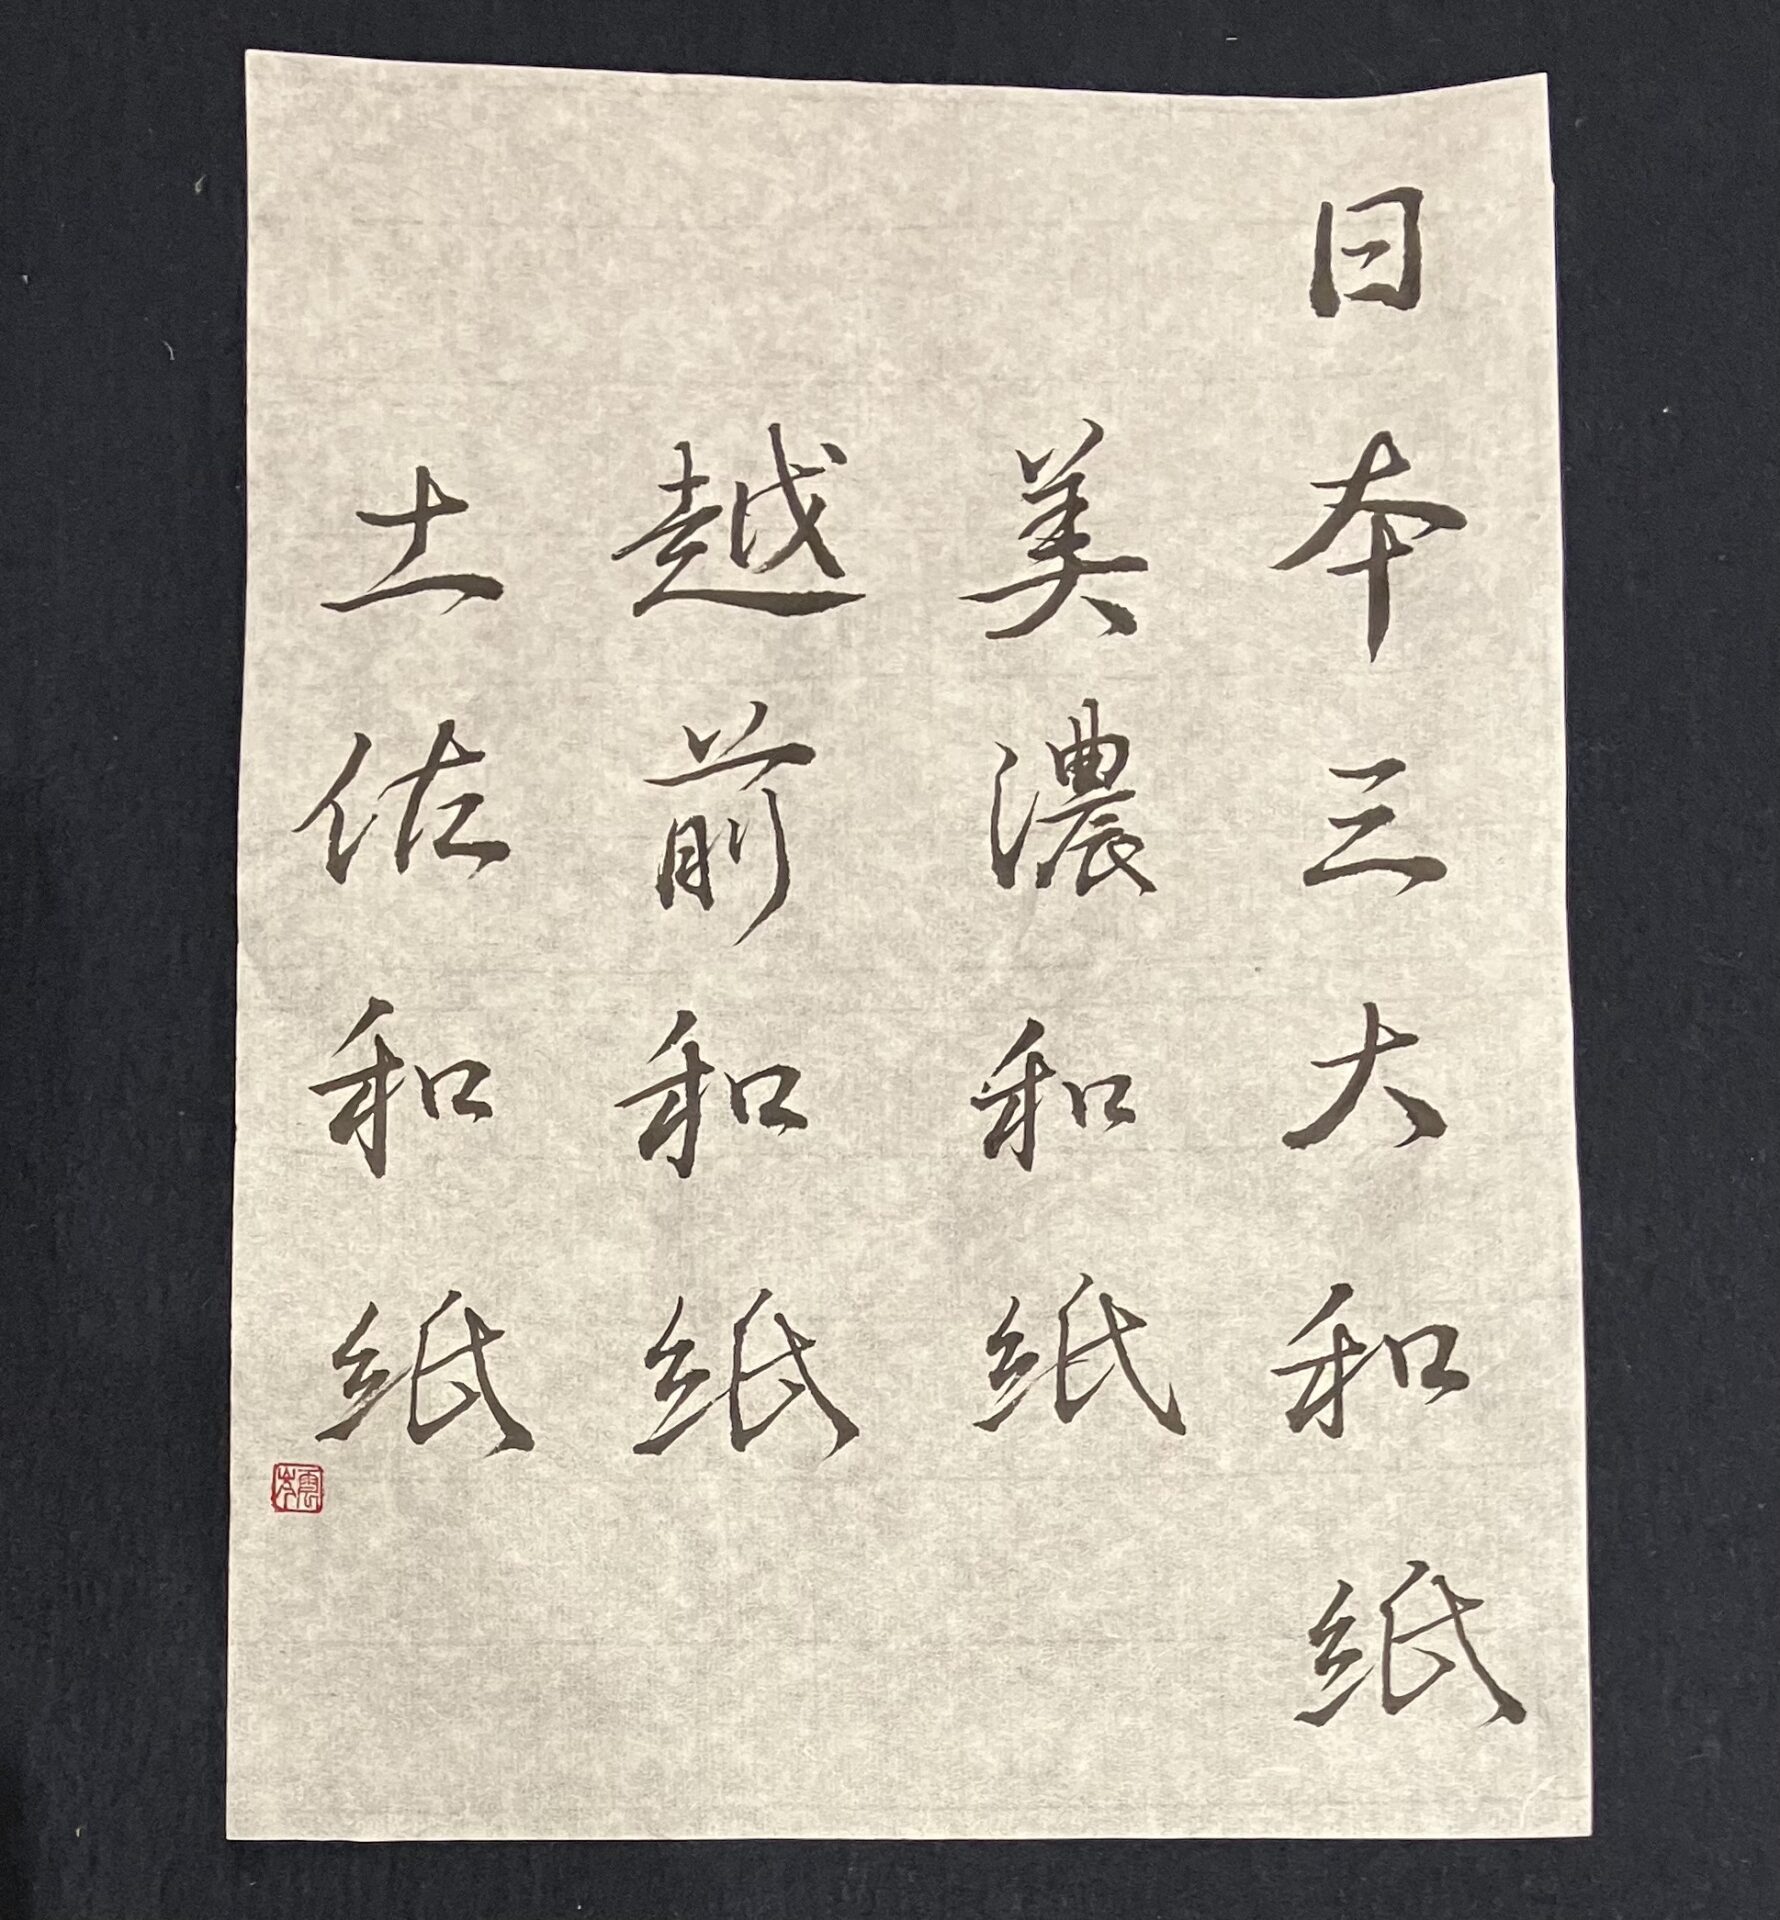 日本三大和紙
美濃和紙
越前和紙
土佐和紙